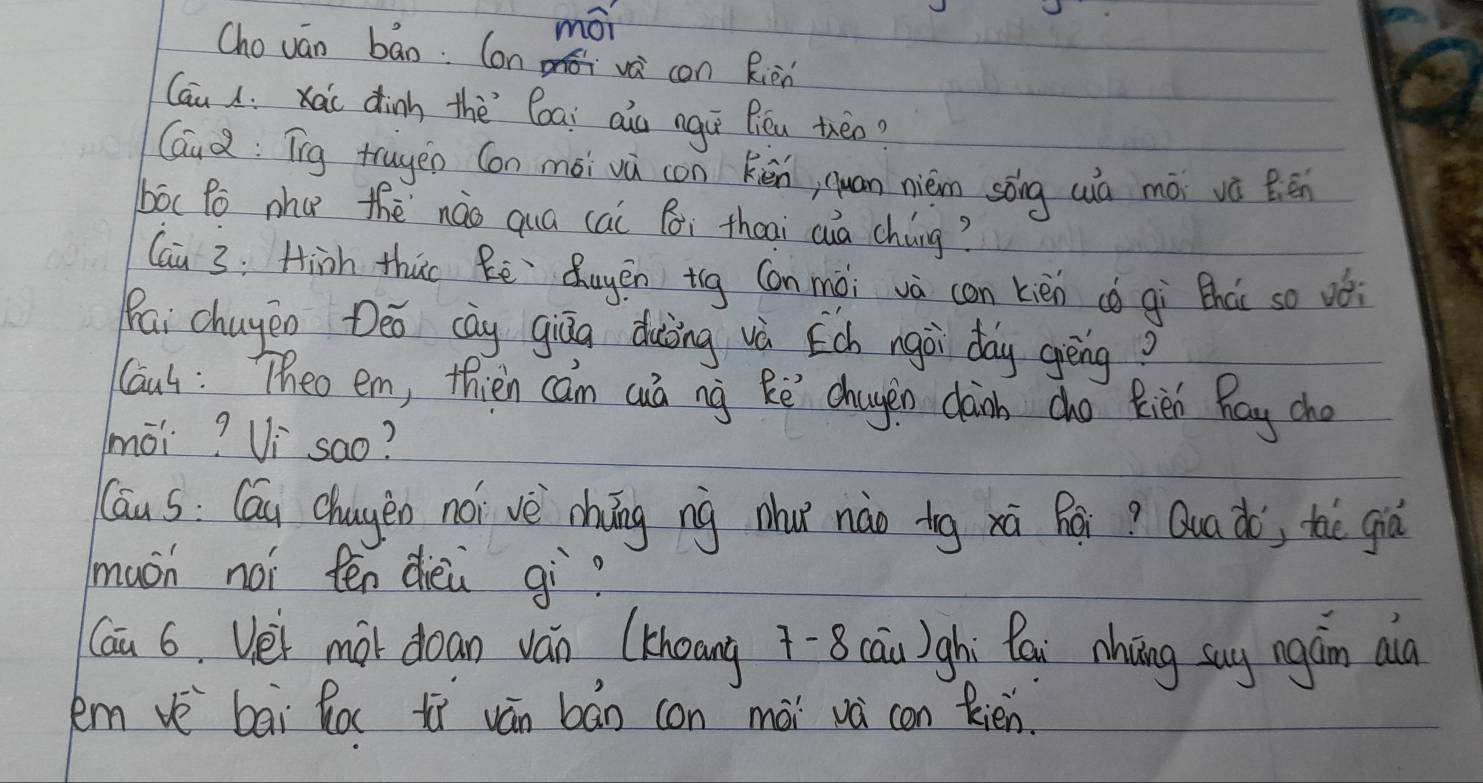 mối
Cho văn bản: Con mối và con kiến
Câu 1: Xác định thể loại của ngữ liệu trên?
Câu 2: Trg truyện Con mối và con kiến, quan niệm sống của mối và kiến
bộc lộ như thế nào qua các lời thoại của chúng?
Câu 3: Hình thức kể chuyện trg Con mối và con kiến có gì khác so với
hai chuyện Đẽo cày giữa đường và Ếch ngồi đáy giếng?
Câu 4: Theo em, thiện cảm của ng kể chuyện dành cho kiến hay cho
mối? Vì sao?
Câu 5: Câu chuyện nói về những ng như nào trg xã hội? Qua đó, tác giả
muốn nói lên điều gì?
Câu 6. Viết một đoạn văn (khoảng 7-8 câu) ghi lại những suy ngẫm của
em về bài học từ văn bản con mối và con kiến.